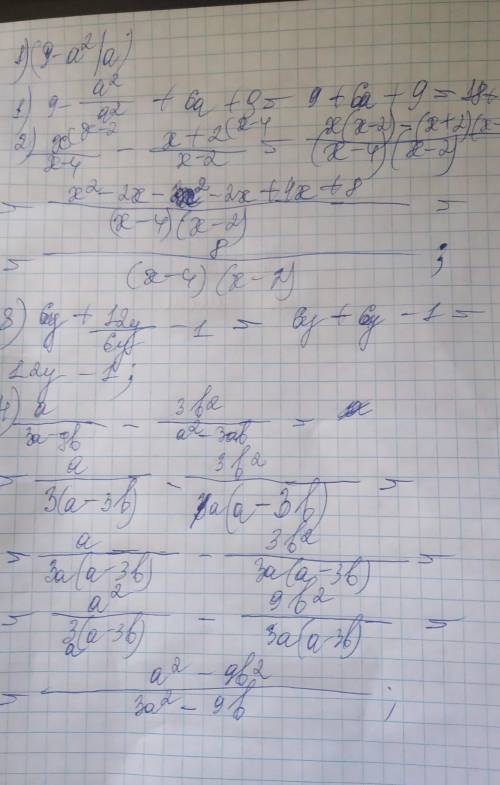 1) (9-a²|a)
1) 9 - a²/a² + 6a + 9 = 9 + 6a + 9 = 18+
2) x(x-2/x-4 - x+2(x-4/x-2 = x(x-2)-(x+2)(x-/(x-4)(x-2)
= x²-2x- x²-2x+4x+8/(x-4)(x-2) =
= 8/(x-4)(x-2) ;
3) 6y + 12y/6y - 1 = 6y + 6y - 1 =
12y - 1;
4) a/3a-9b - 3b²/a²-3ab =
= a/3(a-3b) - 3b²/a(a-3b) =
= a/3a(a-3b) - 3b²/3a(a-3b) =
= a²/3a(a-3b) - 9b²/3a(a-3b) =
= a²-9b²/3a²-9b ;